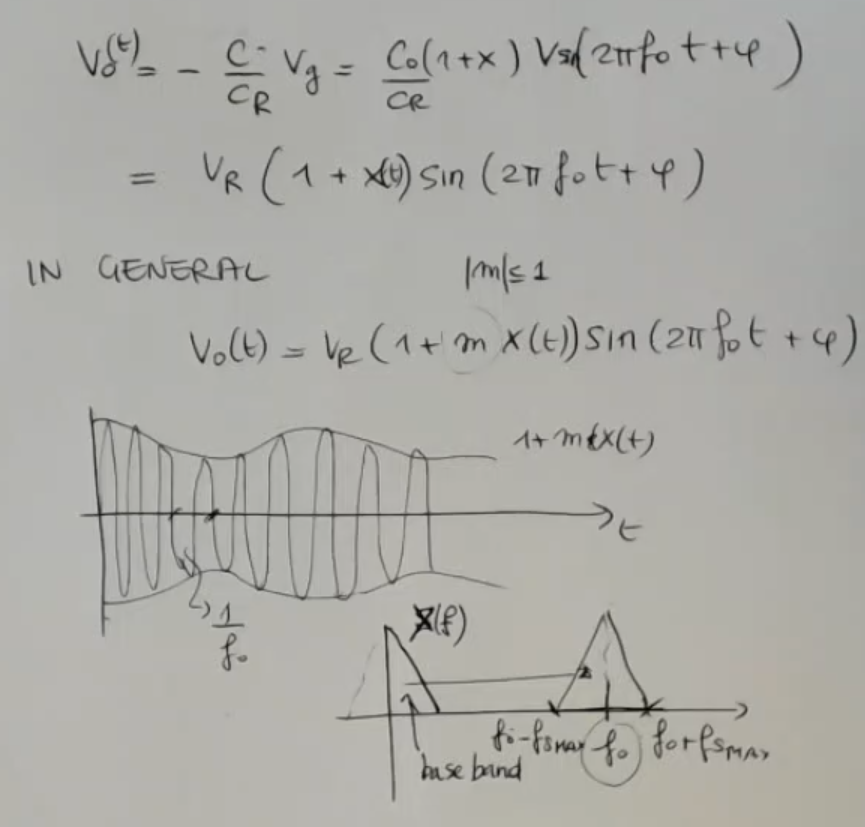 Vo(t) = - C/C_R Vg = C₀(1+x)/C_R V sin(2πf₀t+φ)
= V_R (1 + x(t)) sin (2π f₀t + φ)
IN GENERAL |m|≤1
V₀(t) = V_R (1 + m x(t)) sin (2π f₀t + φ)
1+ m x(t)
t
1/f₀
X(f)
f₀-fsMAX f₀ f₀+fsMAX
base band